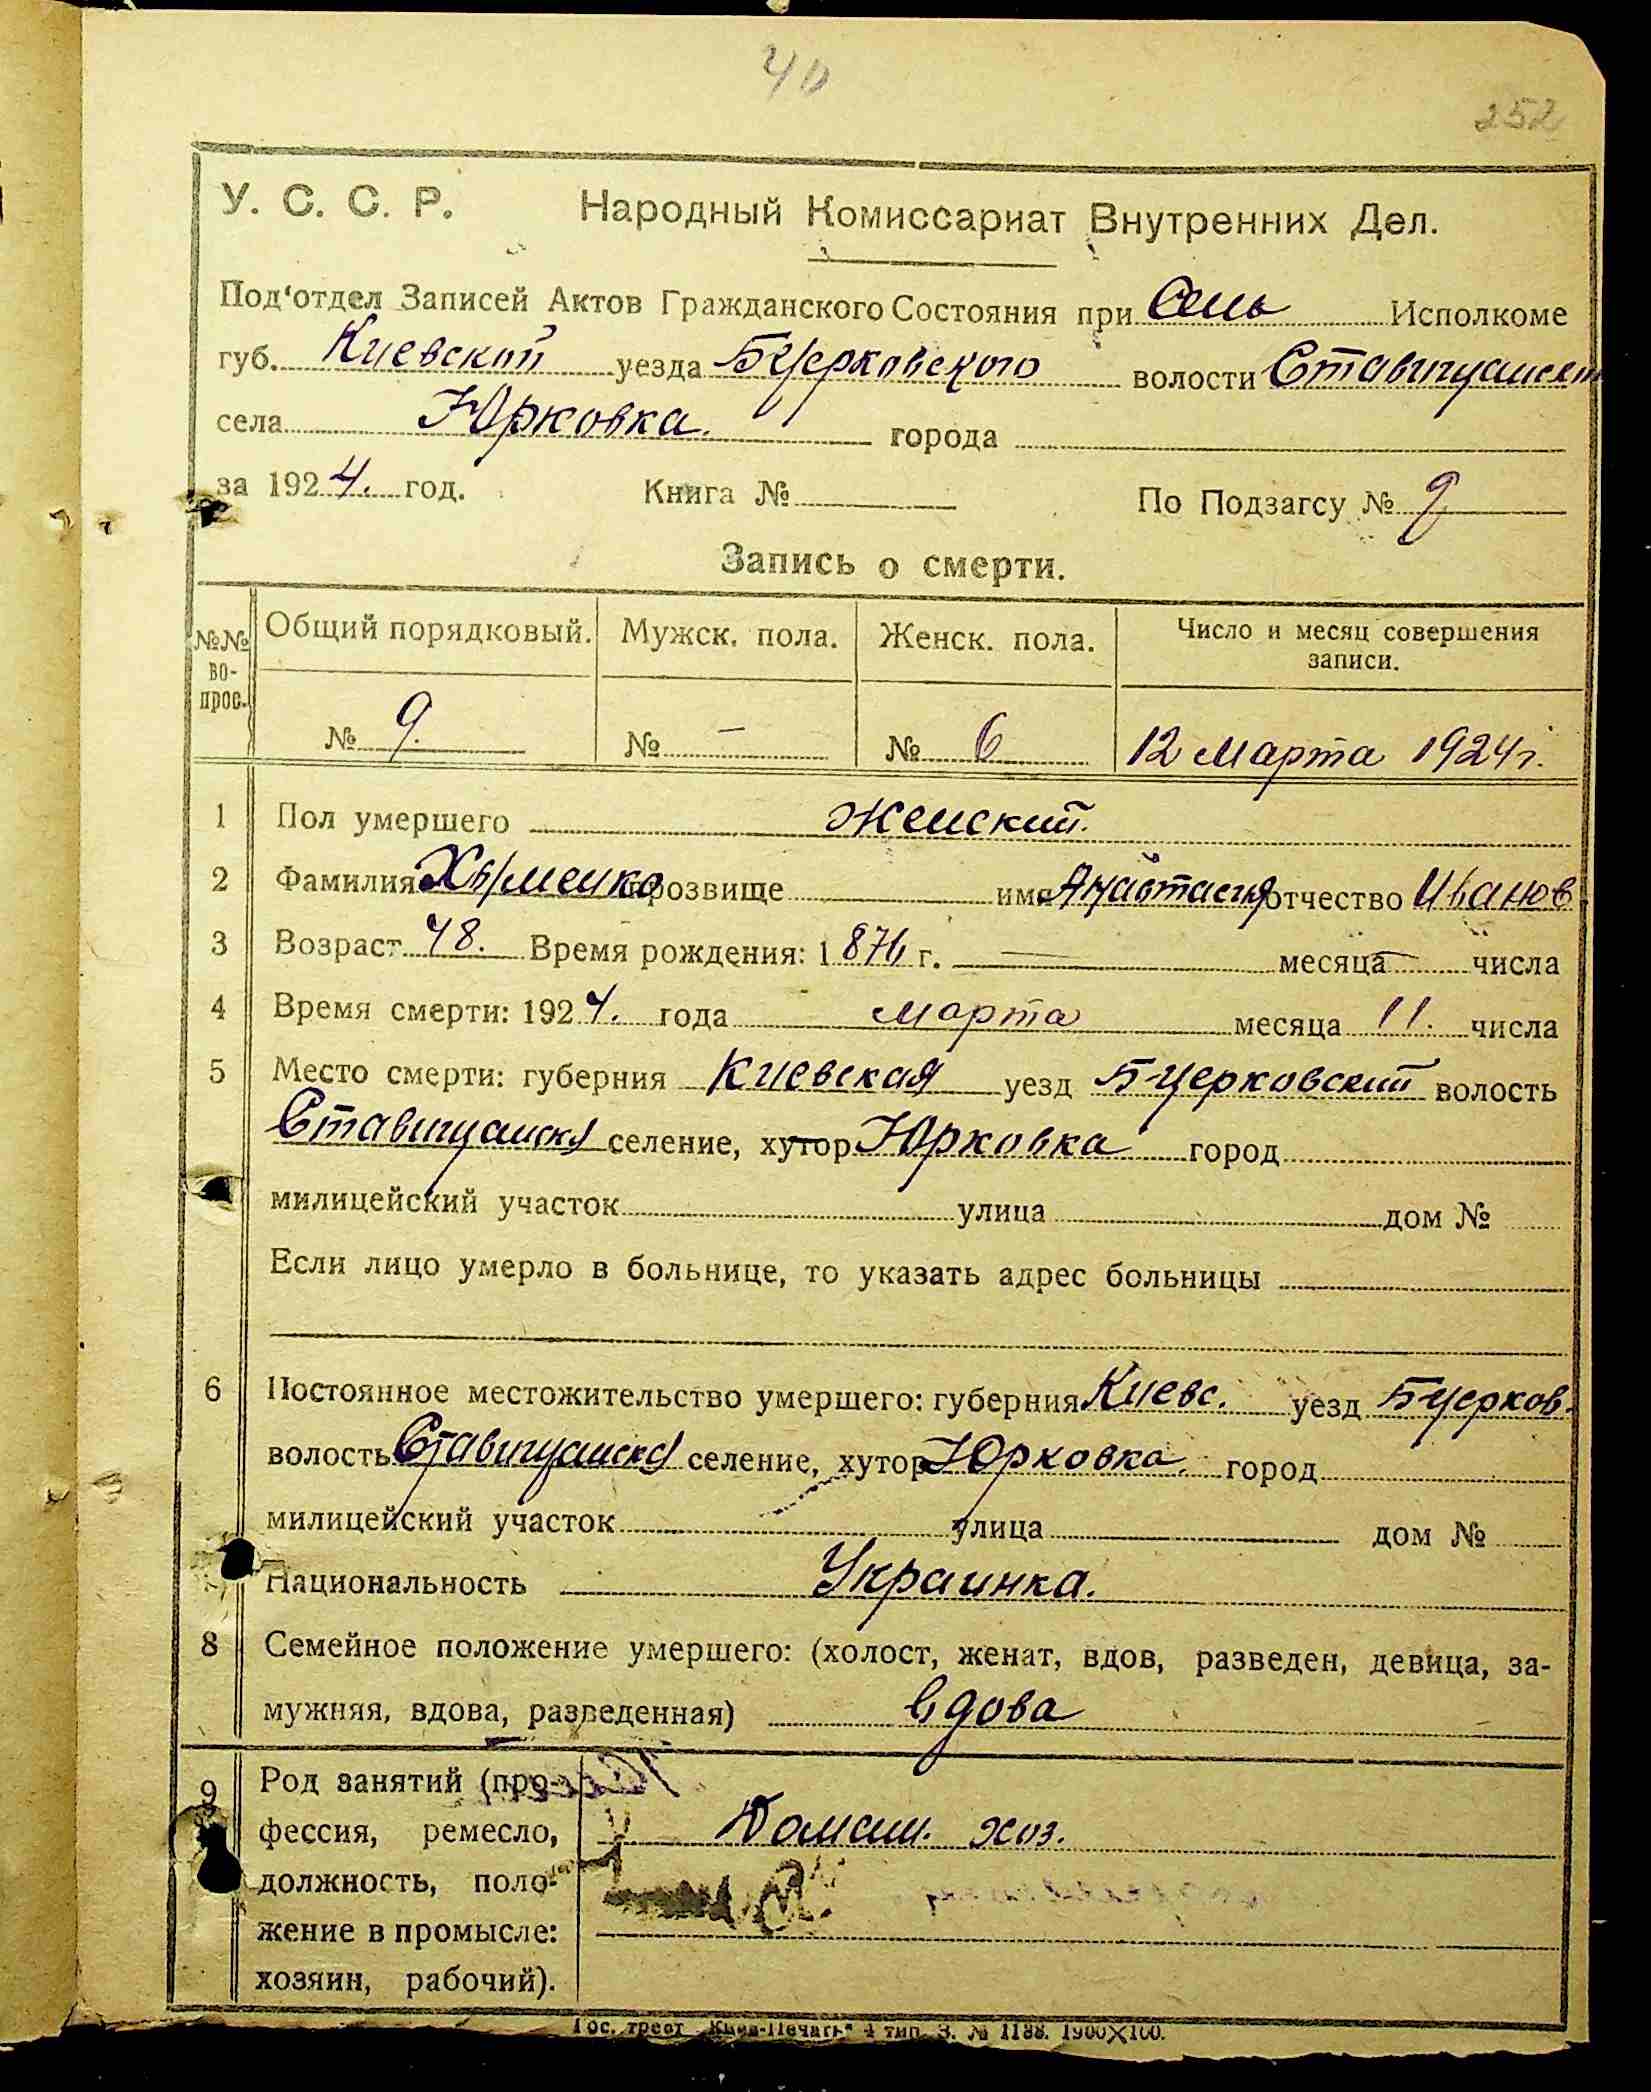 40
252
У. С. С. Р. Народный Комиссариат Внутренних Дел.
Под'отдел Записей Актов Гражданского Состояния при Сель Исполкоме
губ. Киевской уезда Бцерковского волости Ставищанской
села Юрковка. города
за 1924. год. Книга № По Подзагсу № 9
Запись о смерти.
№№ во-прос. Общий порядковый. Мужск. пола. Женск. пола. Число и месяц совершения записи.
№ 9. № - № 6 12 марта 1924 г.
1 Пол умершего женский.
2 Фамилия Хыменко прозвище имя Анастасия отчество Иванов
3 Возраст 48. Время рождения: 1876 г. — месяца — числа
4 Время смерти: 1924. года марта месяца 11. числа
5 Место смерти: губерния Киевская уезд Бцерковский волость
Ставищанск селение, хутор Юрковка город
милицейский участок улица дом №
Если лицо умерло в больнице, то указать адрес больницы
6 Постоянное местожительство умершего: губерния Киевс. уезд Бцерков.
волость Ставищанск селение, хутор Юрковка. город
милицейский участок улица дом №
Национальность Украинка.
8 Семейное положение умершего: (холост, женат, вдов, разведен, девица, за-
мужняя, вдова, разведенная) вдова
9 Род занятий (про-
фессия, ремесло, Домаш. хоз.
должность, поло-
жение в промысле:
хозяин, рабочий).
Гос. трест „Киев-Печать" 4 тип. З. № 1188. 1900×100.